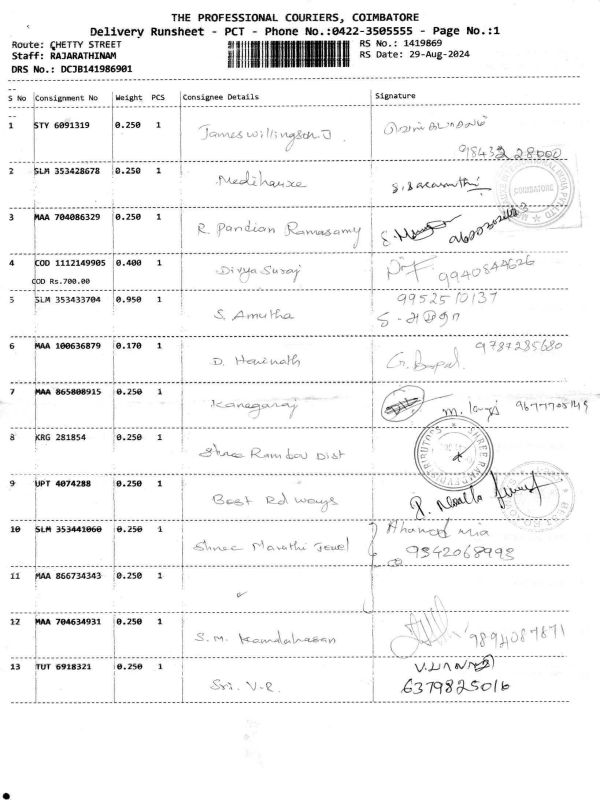 THE PROFESSIONAL COURIERS, COIMBATORE
Delivery Runsheet - PCT - Phone No.:0422-3505555 - Page No.:1
Route: CHETTY STREET RS No.: 1419869
Staff: RAJARATHINAM RS Date: 29-Aug-2024
DRS No.: DCJB141986901
S No Consignment No Weight PCS Consignee Details Signature
1 STY 6091319 0.250 1 James willingson.J
2 SLM 353428678 0.250 1 Medihauxe
COIMBATORE
3 MAA 704086329 0.250 1 R. Pandian Ramasamy
4 COD 1112149905 0.400 1 Divya Suraj 9940844626
COD Rs.700.00
5 SLM 353433704 0.950 1 S. Amutha 9952510137
S - அமுதா
6 MAA 100636879 0.170 1 D. Harinath G. Gopal. 9787285680
7 MAA 865808915 0.250 1 Kanagaraj
8 KRG 281854 0.250 1 Shree Ramdev Dist
9 UPT 4074288 0.250 1 Best Rdways
10 SLM 353441060 0.250 1 Shree Marathi Jewel
9342068993
11 MAA 866734343 0.250 1
12 MAA 704634931 0.250 1 S.M. Kamdahasan 9894087871
13 TUT 6918321 0.250 1 Sri. V.R.
6379825016